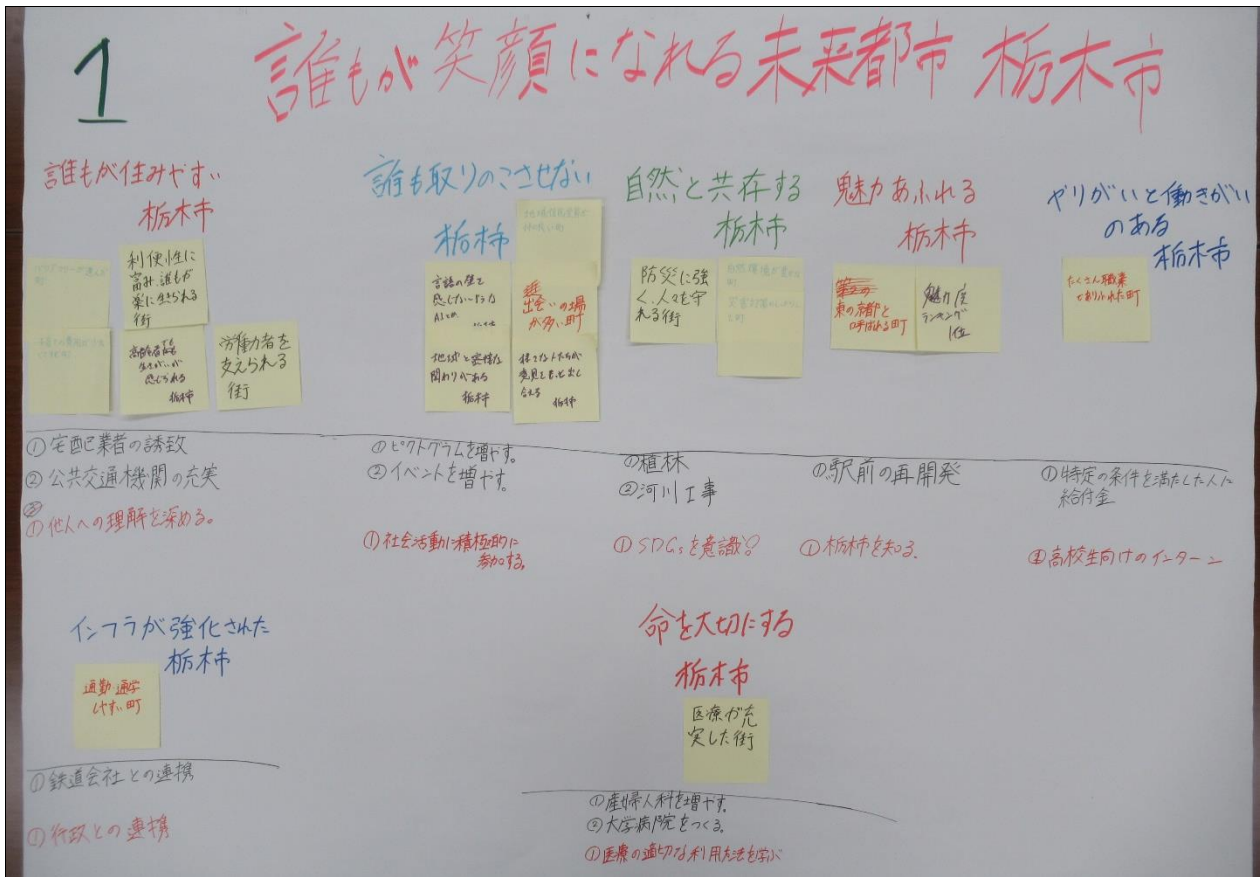 1
誰もが笑顔になれる未来都市 栃木市
誰もが住みやすい
栃木市
利便性に
富み、誰もが
楽に生きられる
街
高齢者でも
生きがいが
感じられる
栃木市
労働力者を
支えられる
街
①宅配業者の誘致
②公共交通機関の充実
③
①他人への理解を深める。
誰も取りのこさせない
栃木市
言語の壁を
感じない
出会いの場
が多い町
地域と密接な
関わりがある
栃木市
栃木市
①ピクトグラムを増やす。
②イベントを増やす。
①社会活動に積極的に
参加する。
自然と共存する
栃木市
防災に強
く、人々を守
れる街
①植林
②河川工事
①SDGsを意識♡
魅力あふれる
栃木市
東の京都と
呼ばれる町
魅力度
ランキング
1位
①駅前の再開発
①栃木市を知る。
やりがいと働きがい
のある
栃木市
たくさん職業
であふれた町
①特定の条件を満たした人に
給付金
①高校生向けのインターン
インフラが強化された
栃木市
通勤・通学
しやすい町
①鉄道会社との連携
①行政との連携
命を大切にする
栃木市
医療が充
実した街
①産婦人科を増やす。
②大学病院をつくる。
①医療の適切な利用方法を学ぶ